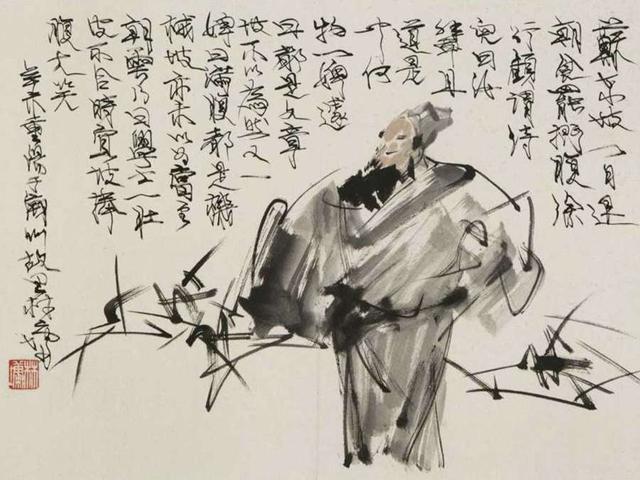 蘇东坡一日退
朝食罷捫腹徐
行顧謂侍
兒曰汝
輩且
道是
中何
物一婢遽
曰都是文章
坡不以為然又一
婢曰滿腹都是機
械坡亦未以為當至
朝雲乃曰學士一肚
皮不合時宜坡捧
腹大笑
辛未重陽于州故里林墉
林墉